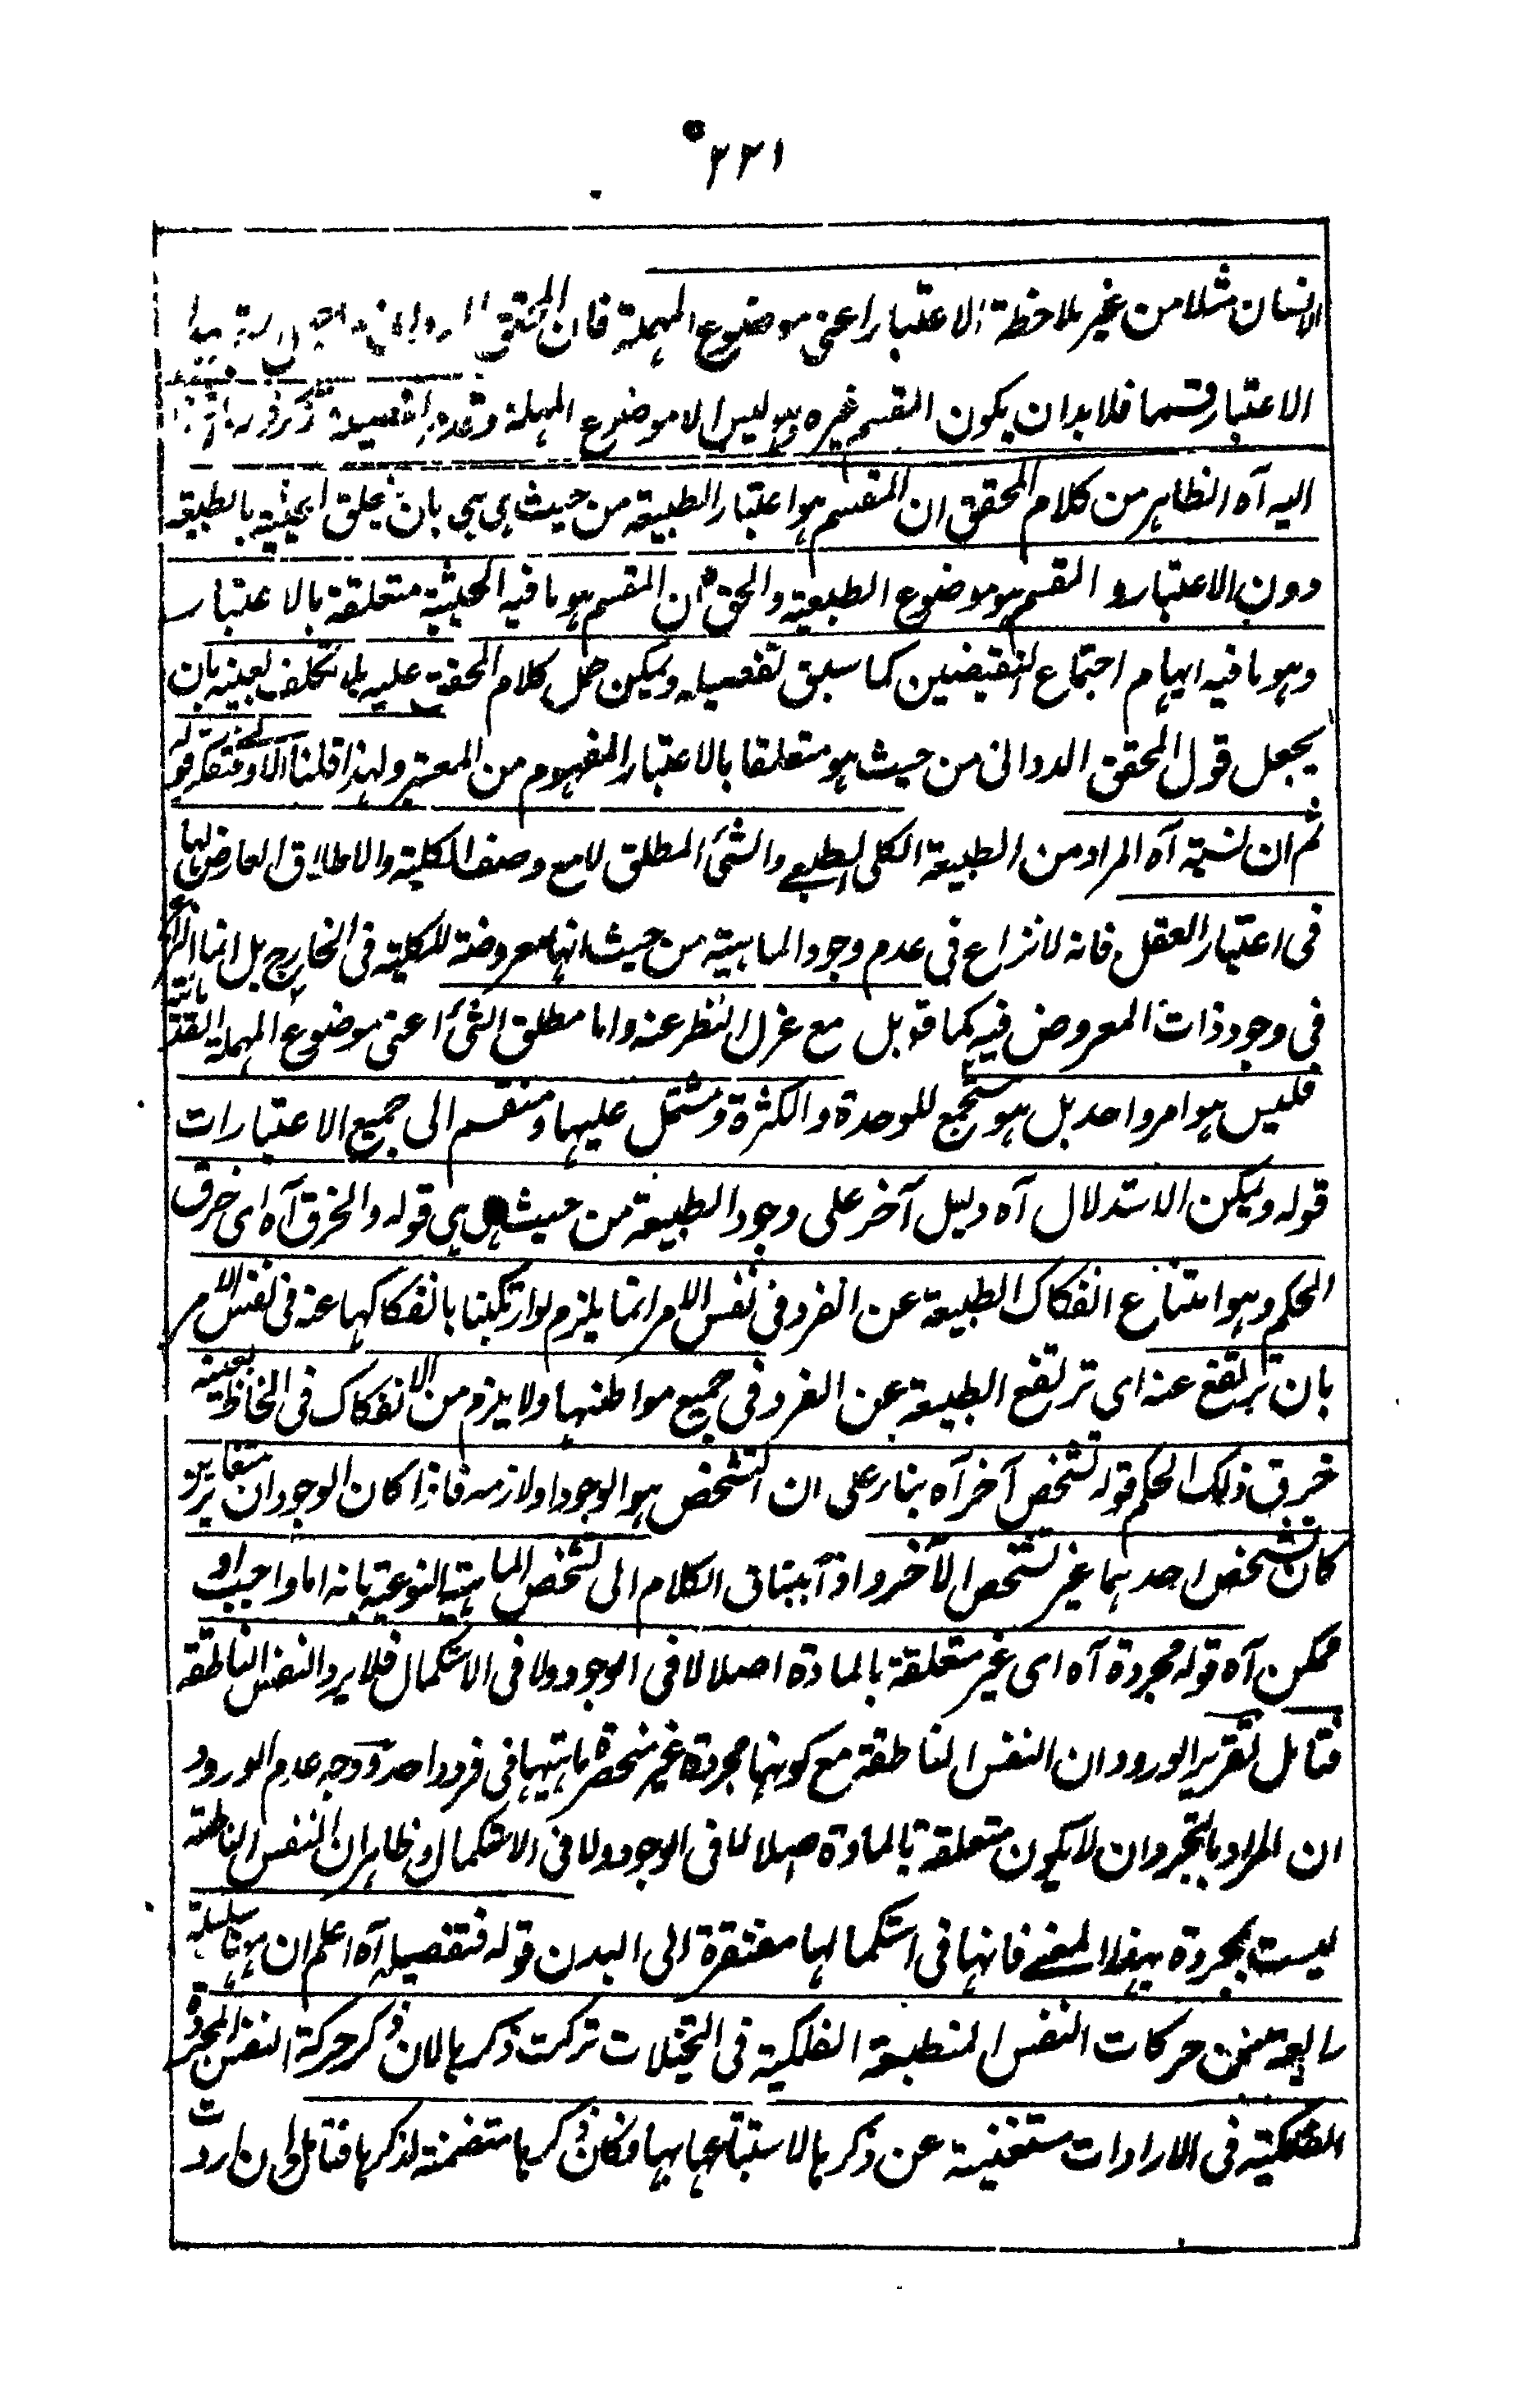 ۲۳۱
الانسان مثلا من غير ملاحظة الاعتبار اعنى موضوع المهملة فان المحقق
الاعتبار قسما فلا بد ان يكون المقسم غيره وهو ليس الا موضوع المهملة
اليه آه الظاهر من كلام المحقق ان المقسم هو اعتبار الطبيعة من حيث هى هى بان يعلق الحيثية بالطبيعة
دون الاعتبار والمقسم هو موضوع الطبعية والحق ان المقسم هو ما فيه الحيثية متعلقة بالاعتبار
وهو ما فيه ايهام اجتماع النقيضين كما سبق تفصيله ويمكن حمل كلام المحقق عليه بلا تكلف بعينه بان
يجعل قول المحقق الدوانى من حيث هو متعلقا بالاعتبار المفهوم من المعتبر ولهذا قلنا قوله
ثم ان نسبة آه المراد من الطبيعة الكلى الطبعے والشئ المطلق لا مع وصف الكلية والاطلاق العارض لها
فى اعتبار العقل فانه لا نزاع فى عدم وجود الماهية من حيث انها معروضة للكلية فى الخارج بل انما النزاع
فى وجود ذات المعروض فيه كما قوبل مع عزل النظر عنه واما مطلق الشئ اعنى موضوع المهملة القدمائية
فليس هو امر واحد بل هو مستجمع للوحدة والكثرة ومشتمل عليها ومنقسم الى جميع الاعتبارات
قوله ويمكن الاستدلال آه دليل آخر على وجود الطبيعة من حيث هى هى قوله والخرق آه اى خرق
الحكم وهو امتناع انفكاك الطبيعة عن الفرد فى نفس الامر انما يلزم لو ارتكبنا بانفكاكها عنه فى نفس الامر
بان ترتفع عنه اى ترتفع الطبيعة عن الفرد فى جميع مواطنها ولا يلزم من الانفكاك فى لحاظ بعينه
خرق ذلك الحكم قوله تشخص آخر آه بناء على ان التشخص هو الوجود او لازمه فاذا كان الوجود ان متغايرين
كان تشخص احدهما غير تشخص الآخر واذ آ ينساق الكلام الى تشخص الماهية النوعية بانه اما واجب او
ممكن آه قوله مجردة آه اى غير متعلقة بالمادة اصلا لا فى الوجود ولا فى الاستكمال فلا يرد النفس الناطقة
فتامل تقرير الورود ان النفس الناطقة مع كونها مجردة غير منحصرة ماهيتها فى فرد واحد ووجه عدم الورود
ان المراد بالتجرد ان لا يكون متعلقة بالمادة اصلا لا فى الوجود ولا فى الاستكمال وظاهر ان النفس الناطقة
ليست بمجردة بهذا المعنے فانها فى استكمالها مفتقرة الى البدن قوله فتفصيله آه اعلم ان ههنا سلسلة
رابعة من حركات النفس المنطبعة الفلكية فى التخيلات تركت ذكرها لان ذكر حركة النفس المجردة
الفلكية فى الارادات مستغنية عن ذكرها لاستتباعها بها فكان ذكرها متضمنة لذكرها فتامل ان اردت